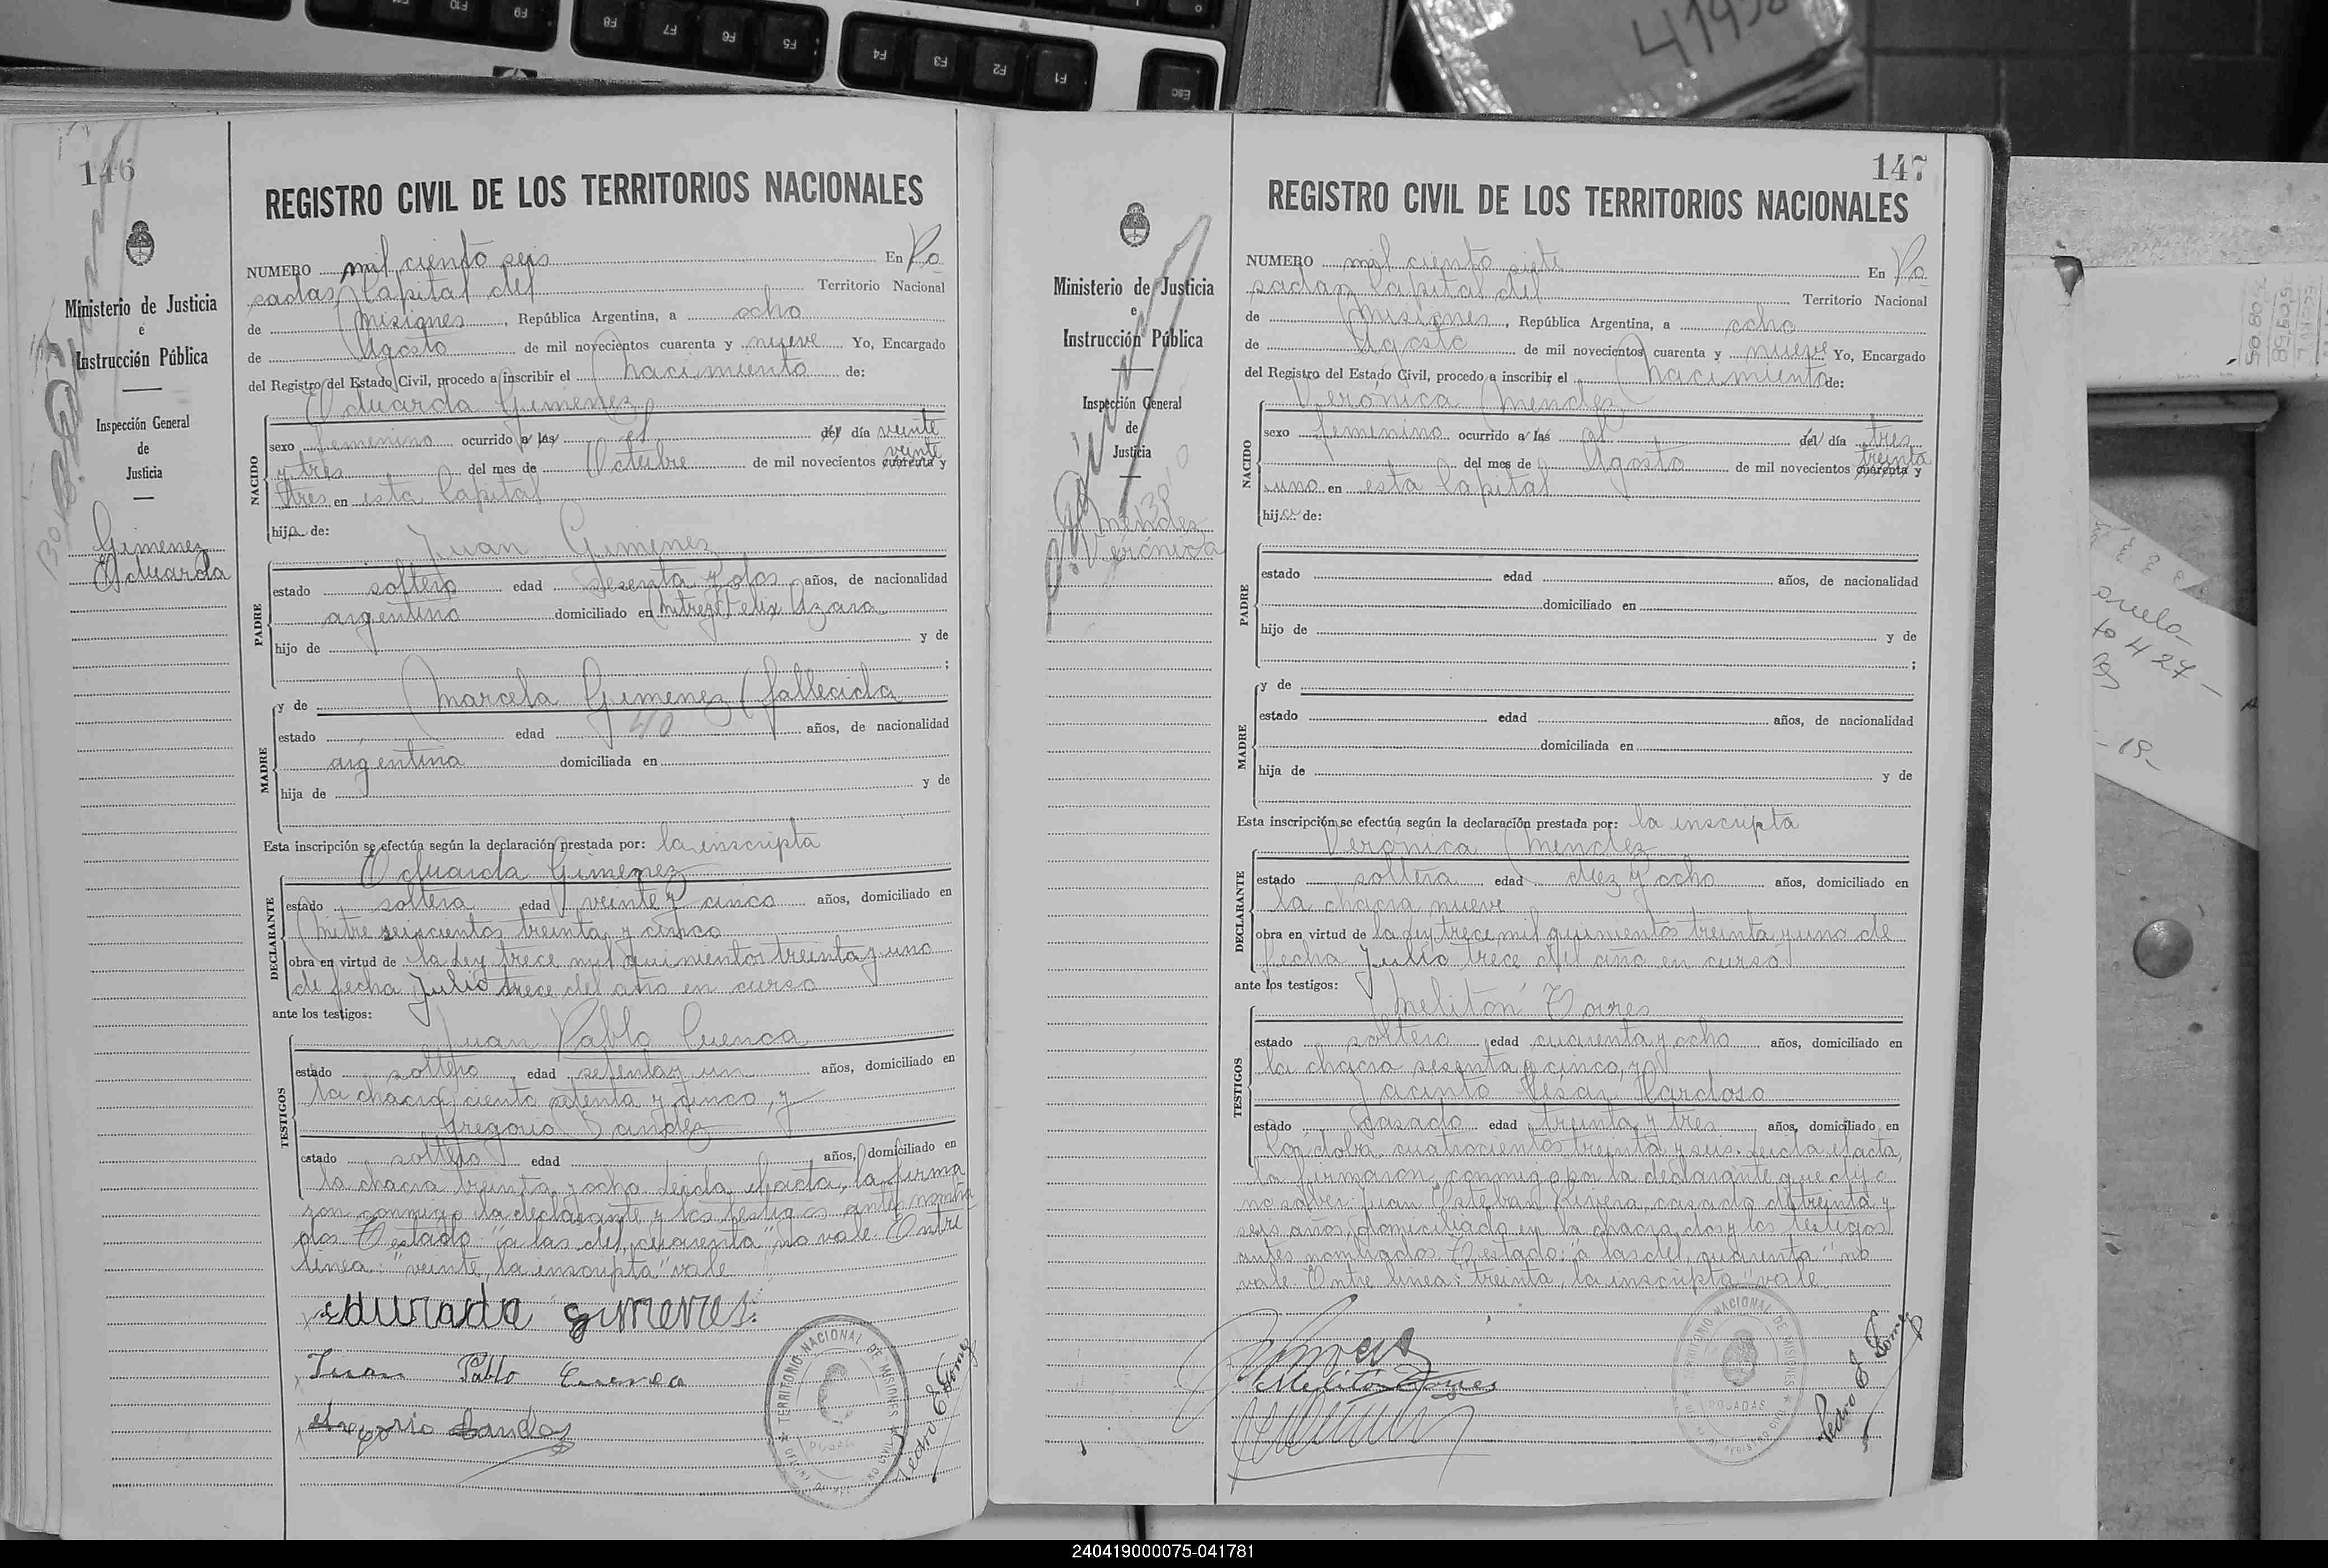 146
Ministerio de Justicia
e
Instrucción Pública
Inspección General
de
Justicia
Gimenez
Eduarda
REGISTRO CIVIL DE LOS TERRITORIOS NACIONALES
NUMERO mil ciento seis En Po
sadas, Capital del Territorio Nacional
de Misiones, República Argentina, a ocho
de Agosto de mil novecientos cuarenta y nueve Yo, Encargado
del Registro del Estado Civil, procedo a inscribir el nacimiento de:
Eduarda Gimenez
NACIDO
sexo femenino ocurrido a las el del día veinte
y tres del mes de Octubre de mil novecientos cuarenta y veinte
tres en esta Capital
hija de:
Juan Gimenez
PADRE
estado soltero edad sesenta y dos años, de nacionalidad
argentino domiciliado en Mitre y Felix Azara
hijo de y de
;
y de Marcela Gimenez (fallecida
MADRE
estado edad 40 años, de nacionalidad
argentina domiciliada en
hija de y de
Esta inscripción se efectúa según la declaración prestada por: la inscripta
Eduarda Gimenez
DECLARANTE
estado soltera edad veinte y cinco años, domiciliado en
Mitre seiscientos treinta y cinco
obra en virtud de la Ley trece mil quinientos treinta y uno
de fecha Julio trece del año en curso
ante los testigos:
Juan Pablo Cuenca
TESTIGOS
estado soltero edad setenta y un años, domiciliado en
la chacra ciento setenta y cinco, y
Gregorio Sandez
estado soltero edad años, domiciliado en
la chacra treinta y ocho. Leida el acta, la firma
ron conmigo la declarante y los testigos antes nombra
dos. Testado: "a las del, cuarenta" no vale. Entre
linea: "veinte, la inscripta" vale
Edurada gimenes.
Juan Pablo Cuenca
Gregorio Sandez
TERRITORIO NACIONAL DE MISIONES
Pedro E. Gomez
147
Ministerio de Justicia
e
Instrucción Pública
Inspección General
de
Justicia
Mendez
Verónica
REGISTRO CIVIL DE LOS TERRITORIOS NACIONALES
NUMERO mil ciento siete En Po
sadas Capital del Territorio Nacional
de Misiones, República Argentina, a ocho
de Agosto de mil novecientos cuarenta y nueve Yo, Encargado
del Registro del Estado Civil, procedo a inscribir el nacimiento de:
Verónica Mendez
NACIDO
sexo femenino ocurrido a las el del día tres
del mes de Agosto de mil novecientos cuarenta y treinta
uno en esta Capital
hija de:
PADRE
estado edad años, de nacionalidad
domiciliado en
hijo de y de
;
y de
MADRE
estado edad años, de nacionalidad
domiciliada en
hija de y de
Esta inscripción se efectúa según la declaración prestada por: la inscripta
Verónica Mendez
DECLARANTE
estado soltera edad diez y ocho años, domiciliado en
la chacra nueve
obra en virtud de la ley trece mil quinientos treinta y uno de
fecha Julio trece del año en curso
ante los testigos:
Melitón Torres
TESTIGOS
estado soltero edad cuarenta y ocho años, domiciliado en
la chacra sesenta y cinco, y
Jacinto César Cardoso
estado casado edad treinta y tres años, domiciliado en
Córdoba cuatrocientos treinta y seis. Leida el acta,
la firmaron conmigo por la declarante que dijo
no saber: Juan Esteban Rivero, casado de treinta y
seis años, domiciliado en la chacra dos y los testigos
antes nombrados. Testado: "a las del, cuarenta" no
vale. Entre linea: "treinta, la inscripta" vale
Melitón Torres
TERRITORIO NACIONAL DE MISIONES
POSADAS
Pedro E. Gomez
240419000075-041781